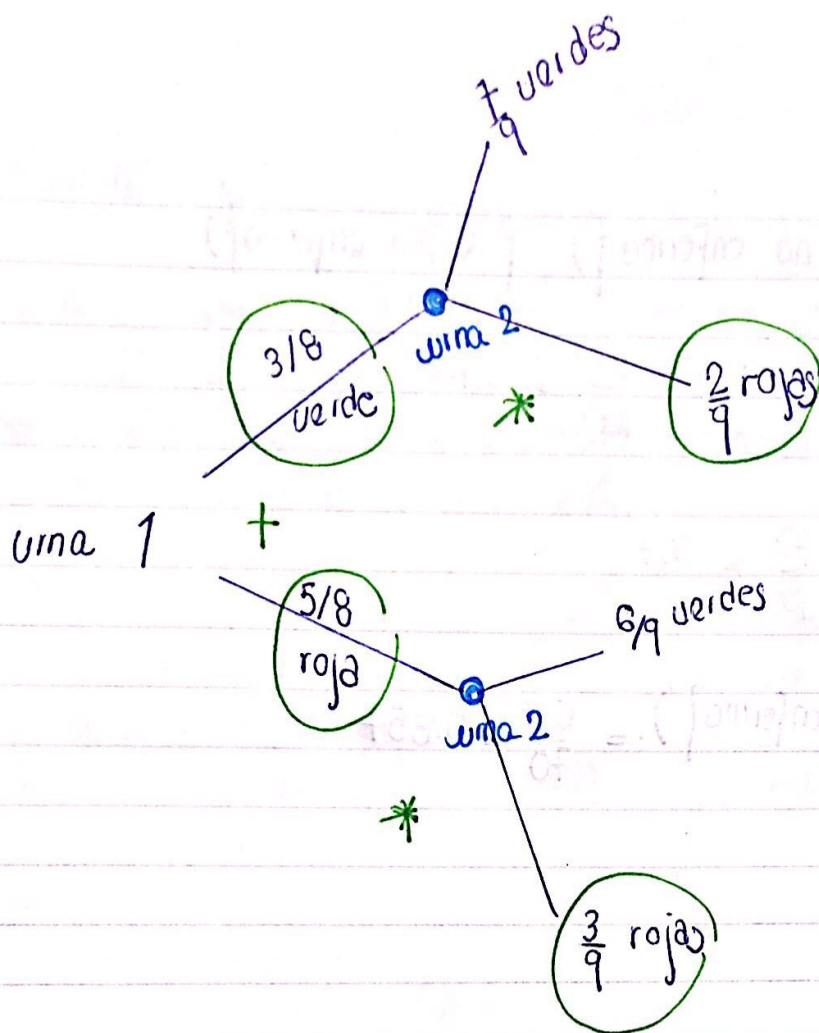 7/9 verdes
3/8
verde
urna 2
2/9 rojas
*
+
urna 1
5/8
roja
6/9 verdes
urna 2
*
3/9 rojas